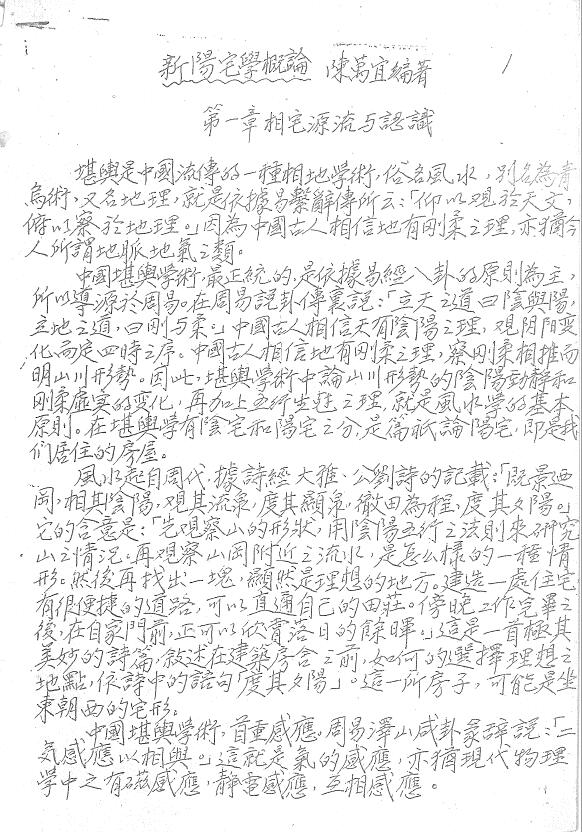 新陽宅學概論 陳萬宜編著 1
第一章相宅源流与認識
堪輿是中國流傳的一種相地學術，俗名風水，別名為青
烏術，又名地理，就是依據易繫辭傳所云：「仰以观於天文，
俯以察於地理。」因為中國古人相信地有剛柔之理，亦猶今
人所謂地脈地氣之類。
中國堪輿學術，最正統的，是依據易經八卦的原則為主，
所以導源於周易。在周易說卦傳裏說：「立天之道曰陰與陽，
立地之道，曰剛与柔。」中國古人相信天有陰陽之理，观阴阳变
化而定四時之序。中國古人相信地有剛柔之理，察剛柔相推而
明山川形勢。因此，堪輿學術中論山川形勢的陰陽動靜和
剛柔虛实的变化，再加上五行生尅之理，就是風水學的基本
原則。在堪輿學有陰宅和陽宅之分，是篇祇論陽宅，即是我
们居住的房屋。
風水起自周代，據詩經大雅、公劉詩的記載：「既景迺
岡，相其陰陽，观其流泉，度其顯泉，徹田為程，度其夕陽。」
它的含意是：「先观察山的形狀，用陰陽五行之法則來研究
山之情況。再观察山岡附近之流水，是怎么樣的一種情
形。然後再找出一塊，顯然是理想的地方。建造一處住宅
有很便捷的道路，可以直通自己的田莊。傍晚工作完畢之
後，在自家門前，正可以欣賞落日的餘暉。」這是一首極其
美妙的詩篇，敘述在建築房舍之前，如何的選擇理想之
地點，依詩中的語句「度其夕陽」。這一所房子，可能是坐
東朝西的宅形。
中國堪輿學術，首重感應。周易澤山咸卦彖辭說：「二
気感應以相與。」這就是氣的感應，亦猶現代物理
學中之有磁感應，靜電感應，互相感應。